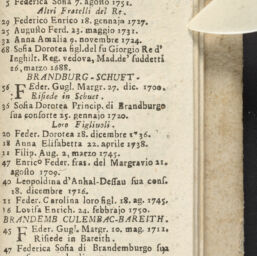 5 Federica Sofia 7. agosto 1751.
Altri Fratelli del Re.
29 Federico Enrico 18. gennaja 1727.
25 Augusto Ferd. 23. maggio 1731.
32 Anna Amalia 9. novembre 1724.
68 Sofia Dorotea figl.del fu Giorgio Re d'
Inghilt. Reg. vedova, Mad.de' suddetti
26. marzo 1688.
BRANDBURG-SCHUET.
56 Feder. Gugl. Margr. 27. dic. 1700.
Risiede in Schuet.
36 Sofia Dorotea Princip. di Brandburgo
sua consorte 25. gennajo 1720.
Loro Figliuoli.
20 Feder. Dorotea 18. dicembre 1736.
18 Anna Elisabetta 22. aprile 1738.
11 Filip. Aug. 2. marzo 1745.
47 Enrico Feder. fras. del Margravio 21.
agosto 1709.
40 Leopoldina d'Anhal-Dessau sua cons.
18. dicembre 1716.
11 Feder. Carolina loro figl. 18. ag. 1745.
16 Lovisa Enrich. 24. febbrajo 1750.
BRANDEMB CULEMBAC-BAREITH.
45 Feder. Gugl. Margr. 10. mag. 1711.
Risiede in Bareith.
47 Federica Sofia di Brandemburgo sua